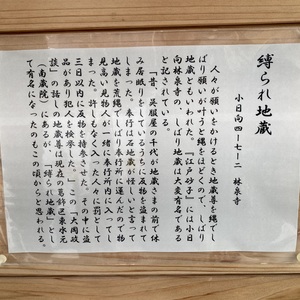 縛られ地蔵
小日向四ー七ー二 林泉寺
人々が願いをかけるとき地蔵尊を縄でし
ばり願いが叶うと縄をほどくので、しばり
地蔵ともいわれた。『江戸砂子』には小日
向林泉寺の、しばり地蔵は大変有名である
と記されている。
「昔、呉服屋の手代が地蔵さまの前で休
み居眠りをしているうちに反物を盗まれて
しまった。奉行は石地蔵が怪しいと言って
地蔵を荒縄でしばり奉行所に運んだので物
見高い見物人が一緒に奉行所内に入ってし
まった。許しもなく入った人々に罰として
三日以内に反物を持参させた。その中に盗
品があり犯人を検挙した。」この『大岡政
談』の話しの地蔵尊は現在の葛飾区東水元
(南蔵院)にあるが、「縛られ地蔵」とし
て有名になったのもこの頃からと思われる。